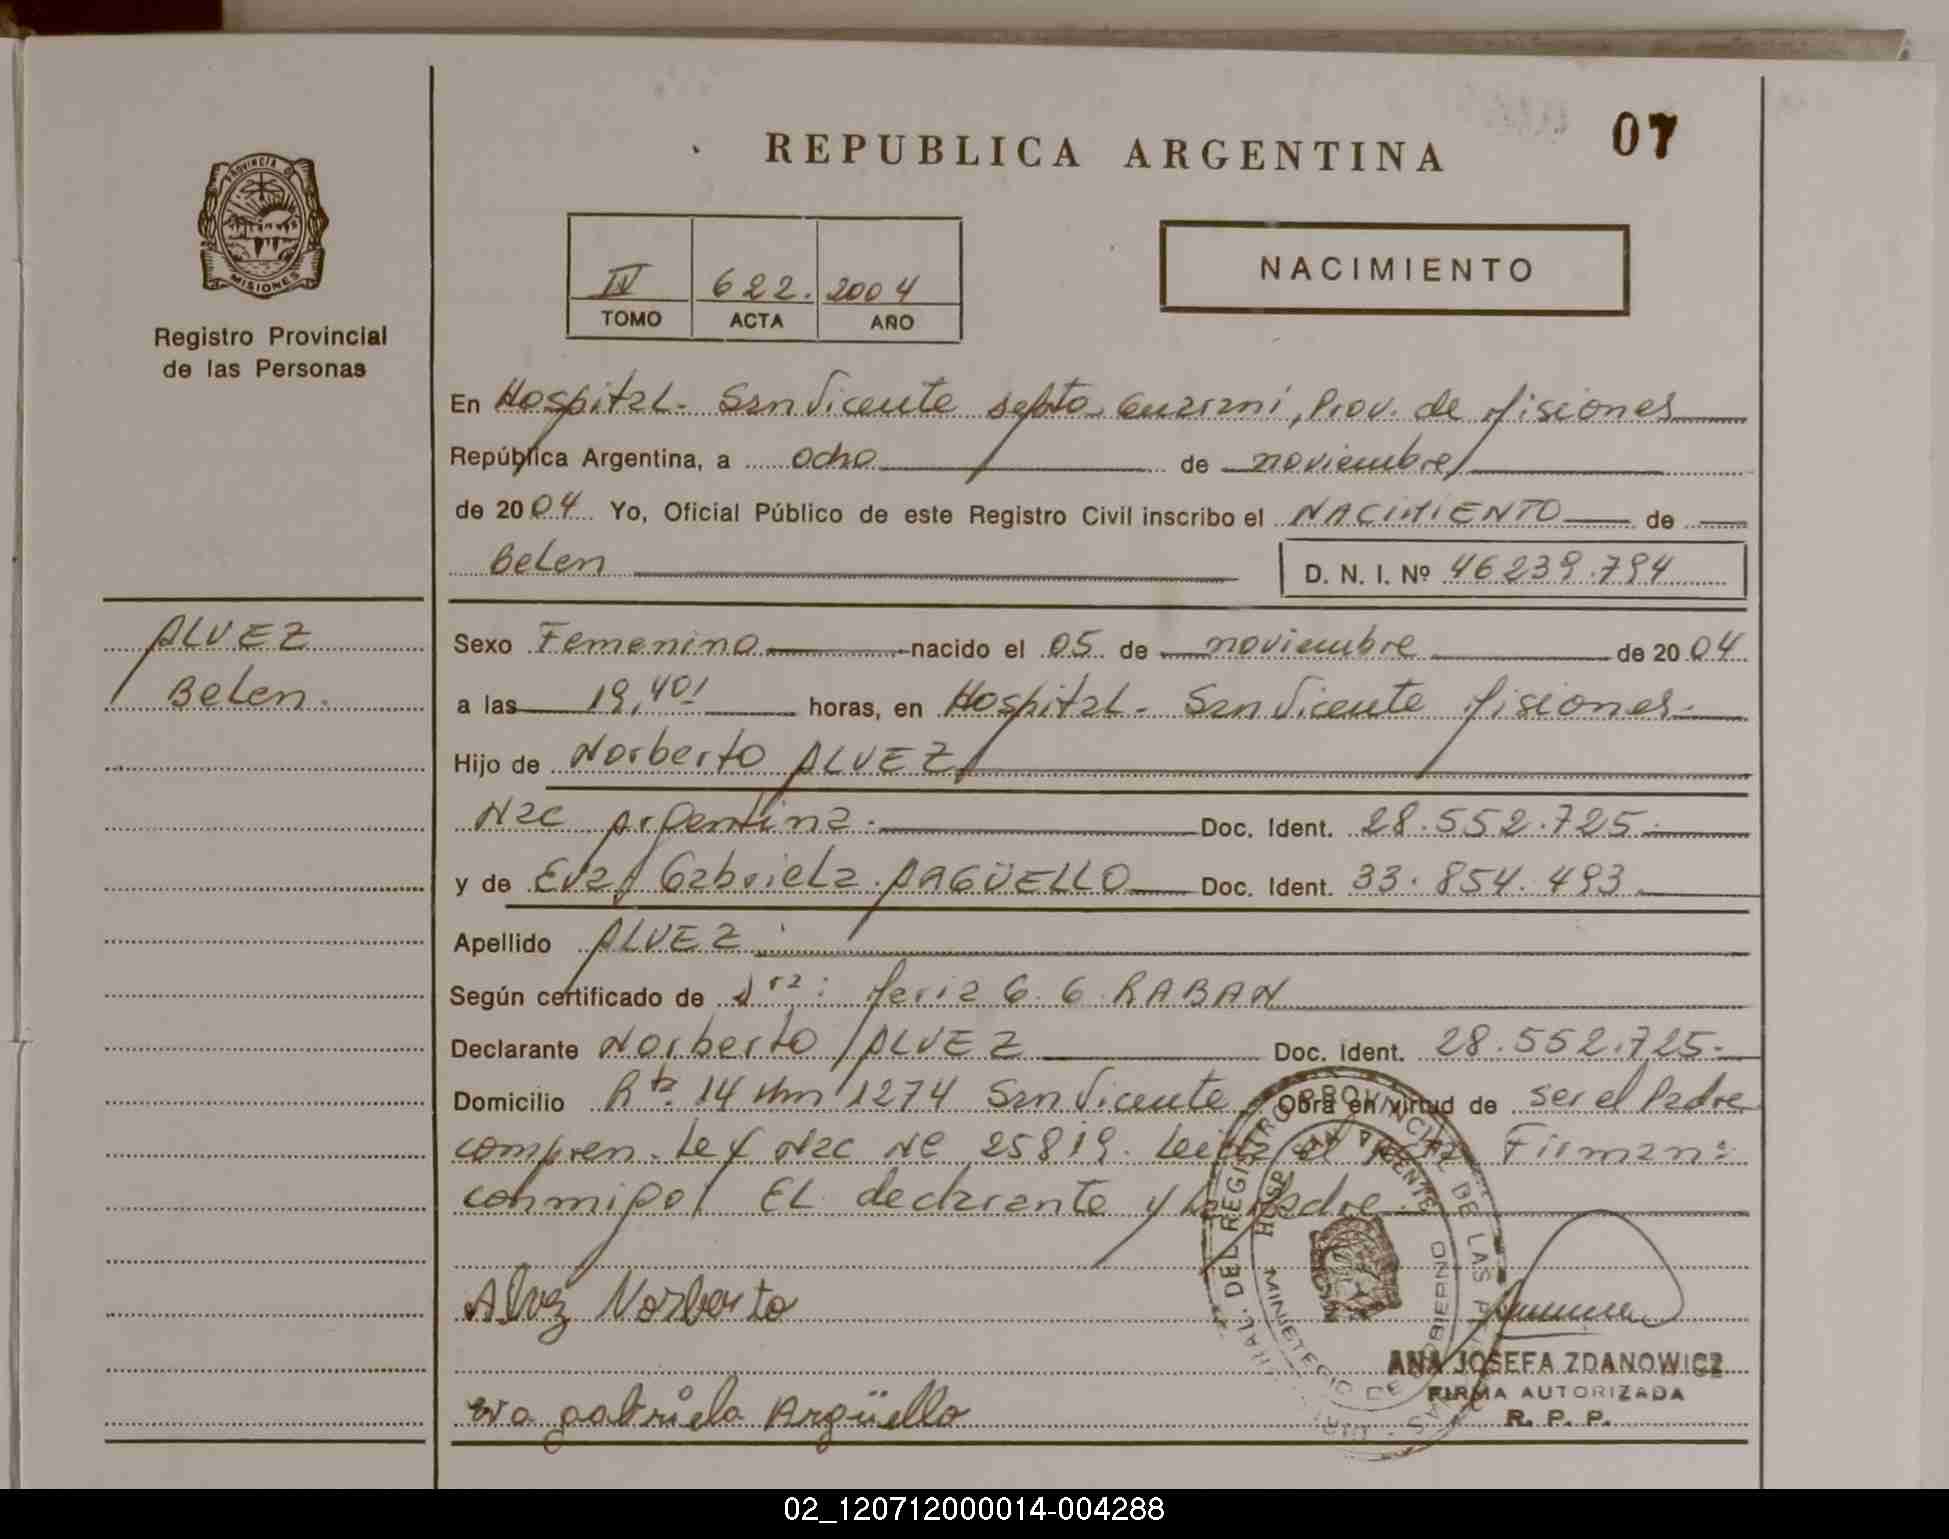 REPUBLICA ARGENTINA
07
PROVINCIA DE
MISIONES
Registro Provincial
de las Personas
IV 622. 2004
TOMO ACTA AÑO
NACIMIENTO
En Hospital - San Vicente Depto Guarani, Prov. de Misiones
República Argentina, a ocho de noviembre
de 2004 Yo, Oficial Público de este Registro Civil inscribo el NACIMIENTO de
Belen D. N. I. Nº 46239.794
ALVEZ
Belen.
Sexo Femenino nacido el 05 de noviembre de 2004
a las 19,40' horas, en Hospital - San Vicente Misiones -
Hijo de Norberto ALVEZ
Nac Argentina. Doc. Ident. 28.552.725.
y de Eva Gabriela ARGÜELLO Doc. Ident. 33.854.493
Apellido ALVEZ
Según certificado de Dra: Maria G. G. RABAN
Declarante Norberto ALVEZ Doc. Ident. 28.552.725.
Domicilio Rta. 14 Km 1274 San Vicente Obra en virtud de ser el Padre
compren. Ley Nac Nº 25819. Leida el Acta Firman:
conmigo EL declarante y la Madre.
Alvez Norberto
Eva gabriela Argüello
REGISTRO PROVINCIAL DE LAS
HOSP. SAN VICENTE
MINISTERIO DE GOBIERNO
ANA JOSEFA ZDANOWICZ
FIRMA AUTORIZADA
R. P. P.
02_120712000014-004288